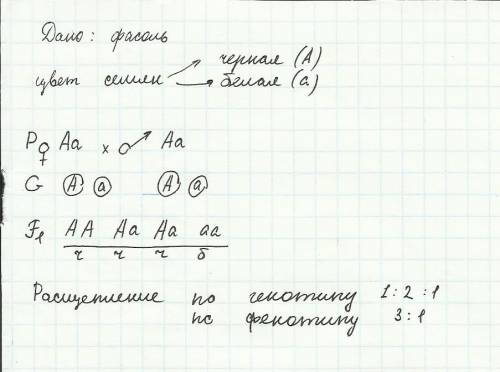 Дано: фасоль
черная (А)
цвет семян
белая (а)
P ♀ Aa x ♂ Aa
G A a A a
F1 AA Aa Aa aa
ч ч ч б
Расщепление по генотипу 1:2:1
по фенотипу 3:1